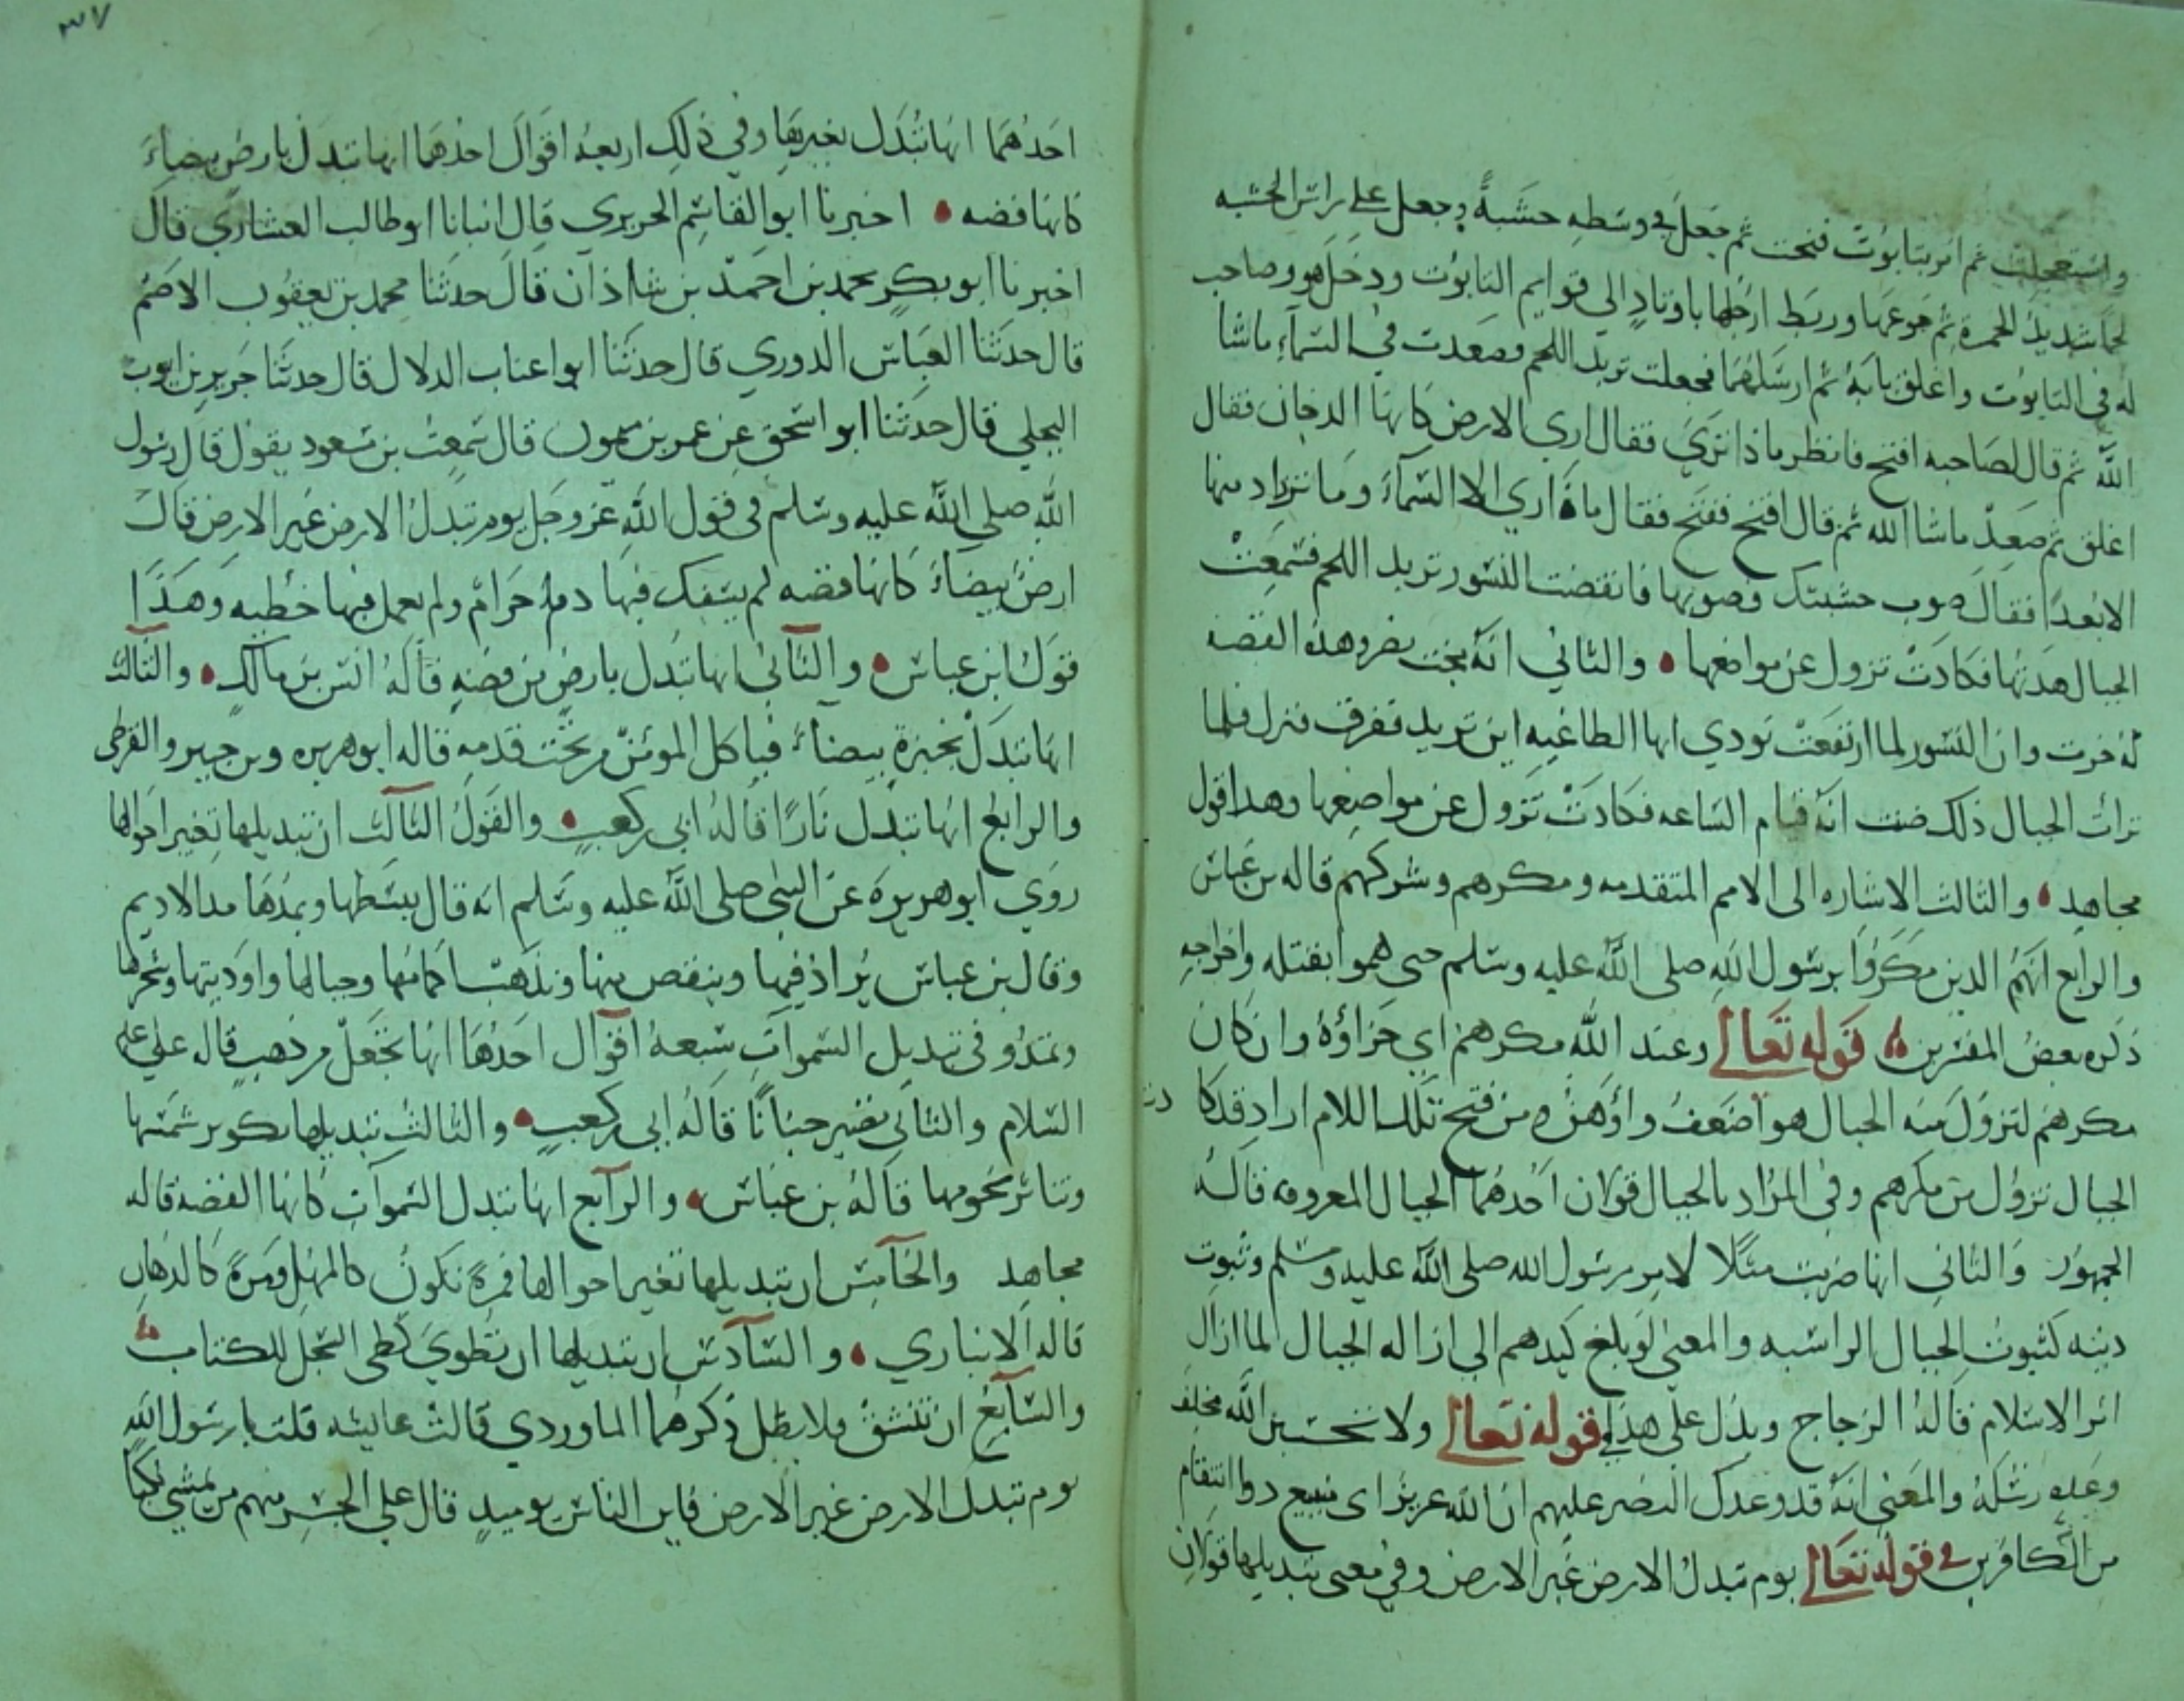 واستعجلت ثم امر بتابوت فنحت ثم جعل في وسطه خشبة وجعل على راس الخشبه
لحما شديد الحمرة ثم جوعها وربط ارجلها باوتاد الى قوايم التابوت ودخل هو وصاحب
له في التابوت واغلق بابه ثم ارسلهما فجعلت تريد اللحم فصعدت في السماء ماشا
الله ثم قال لصاحبه افتح فانظر ماذا ترى ففال ارى الارض كانها الدخان فقال
اغلق ثم صعد ماشا الله ثم قال افتح ففتح فقال ما ارى الا السماء وما نزداد منها
الا بعدا فقال صوب خشبتك فصوبها فانقضت النسور تريد اللحم فسمعت
الجبال هدتها فكادت تزول عن مواضعها والثاني انه بخت نصر وهذه القصه
له جرت وان النسور لما ارتفعت نودي ايها الطاغيه اين تريد ففرق فنزل فلما
رات الجبال ذلك ضنت انه قيام الساعه فكادت تزول عن مواضعها وهذا قول
مجاهد والثالث الاشاره الى الامم المتقدمه ومكرهم وشركهم قاله بن عباس
والرابع انهم الذين مكروا برسول الله صلى الله عليه وسلم حين هموا بقتله واخراجه
ذكره بعض المفسرين قوله تعالى وعند الله مكرهم اي جزاؤه وان كان
مكرهم لتزول منه الجبال هو اضعف واوهن ومن فتح تلك اللام اراد قد كا دت
الجبال تزول من مكرهم وفي المراد بالجبال قولان احدهما الجبال المعروفه قاله
الجمهور والثاني انها ضربت مثلا لامر رسول الله صلى الله عليه وسلم وثبوت
دينه كثبوت الجبال الراسيه والمعنى لو بلغ كيدهم الى ازاله الجبال لما ازال
امر الاسلام قاله الزجاج ويدل على هذا قوله تعالى ولا تحسبن الله مخلف
وعده رسله والمعنى انه قد وعدك النصر عليهم ان الله عزيز اى منيع ذوا انتقام
من الكافرين قوله تعالى يوم تبدل الارض غير الارض وفي معنى تبديلها قولان
٣٧
احدهما انها تبدل بغيرها وفي ذلك اربعة اقوال احدهما انها تبدل بارض بيضاء
كانها فضه اخبرنا ابو القاسم الحريري قال انبانا ابو طالب العشاري قال
اخبرنا ابو بكر محمد بن احمد بن شاذان قال حدثنا محمد بن يعقوب الاصم
قال حدثنا العباس الدوري قال حدثنا ابو اعناب الدلال قال حدثنا جرير بن ايوب
البجلي قال حدثنا ابو اسحق عن عمر بن ميمون قال سمعت بن مسعود يقول قال رسول
الله صلى الله عليه وسلم في قول الله عز وجل يوم تبدل الارض غير الارض قال
ارض بيضاء كانها فضه لم يسفك فيها دم حرام ولم يعمل فيها خطيه وهذا
قول ابن عباس والثاني انها تبدل بارض من فضه قاله انس بن مالك والثالث
انها تبدل بخبزة بيضاء فياكل المومن من تحت قدمه قاله ابو هريره وبن جبير والقرظى
والرابع انها تبدل نارا قاله ابي بن كعب والقول الثالث ان تبديلها تغير احوالها
روى ابو هريره عن النبى صلى الله عليه وسلم انه قال يبسطها ويمدها مد الاديم
وقال بن عباس يزاد فيها وينقص منها وتذهب اكامها وجبالها واوديتها وشجرها
وتمد وفي تبديل السموات سبعة اقوال احدها انها تجعل من ذهب قاله على عليه
السلام والثاني تصير جنانا قاله ابى بن كعب والثالث تبديلها تكوير شمسها
وتناثر نجومها قاله بن عباس والرابع انها تبدل السموات كانها الفضه قاله
مجاهد والخامس ان تبديلها تغير احوالها فمرة تكون كالمهل ومرة كالدهان
قاله الانباري والسادس ان تبديلها ان تطوي كطى السجل للكتاب
والسابع ان تنشق فلا تظل ذكرهما الماوردي قالت عايشه قلت يا رسول الله
يوم تبدل الارض غير الارض فاين الناس يوميذ قال على الجسر منهم من يمشي مكبا